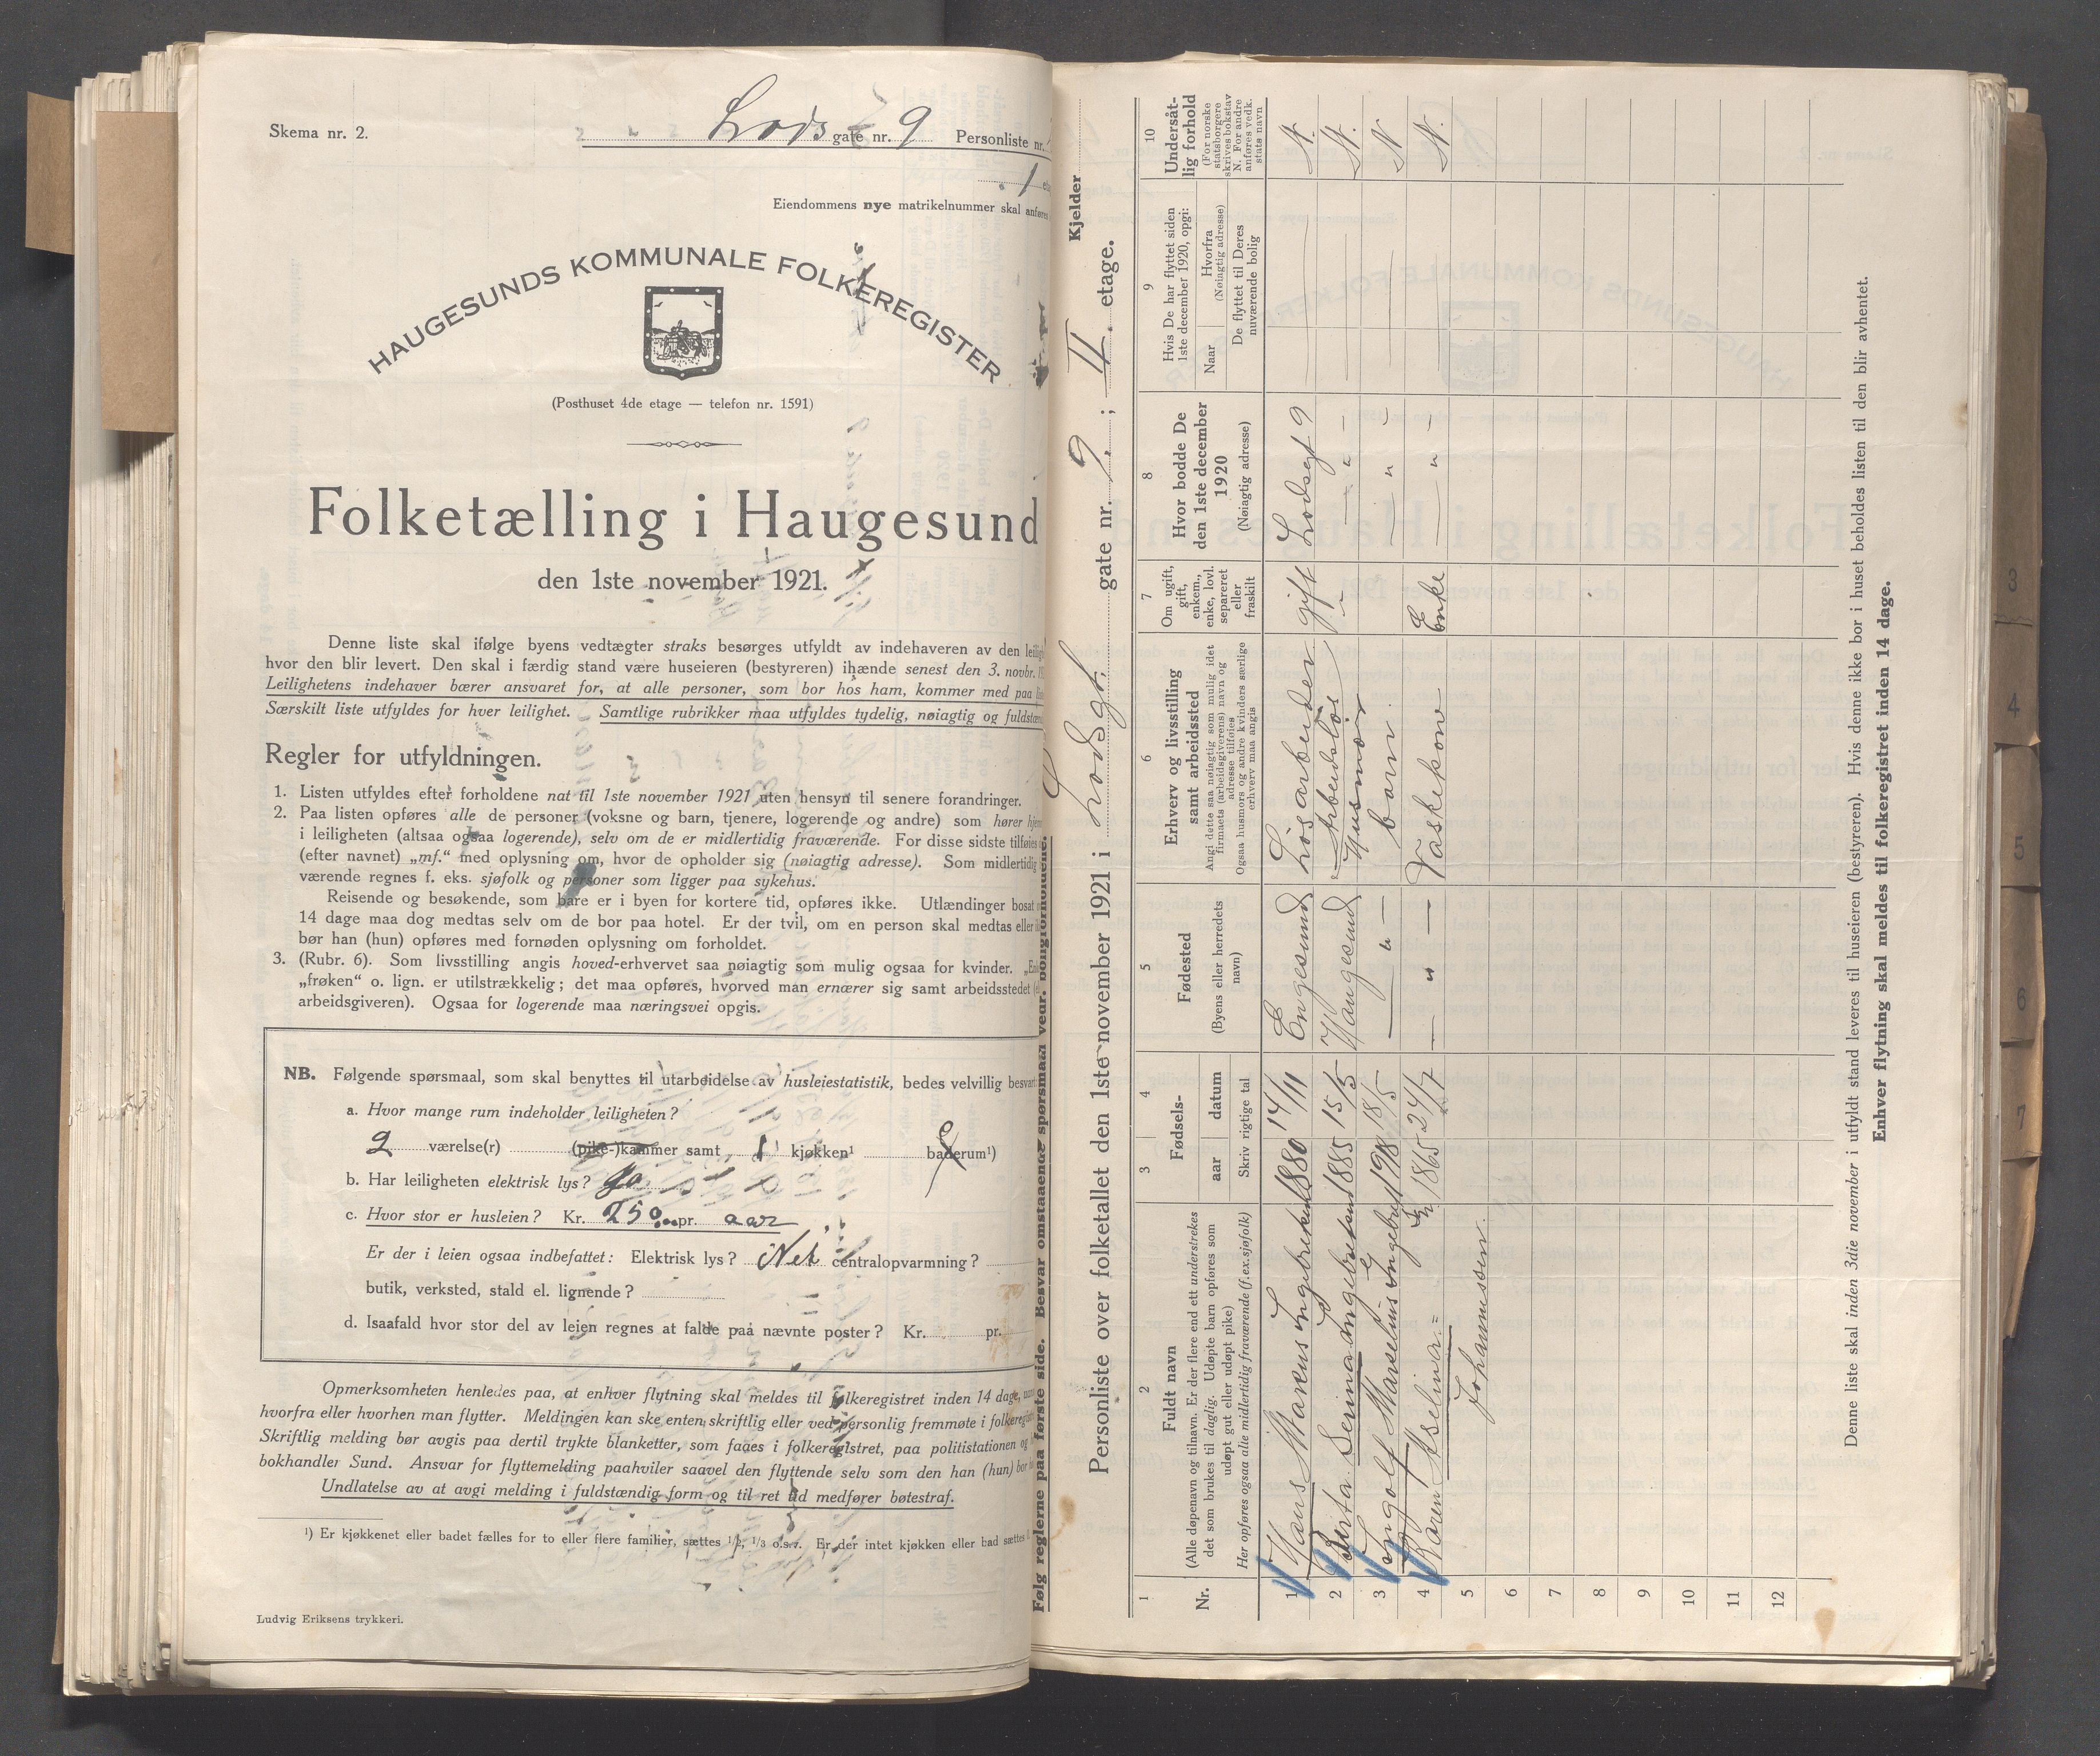 Skema nr. 2.
Lods gate nr. 9 Personliste nr.
1
Eiendommens nye matrikelnummer skal anføres
HAUGESUNDS KOMMUNALE FOLKEREGISTER
(Posthuset 4de etage — telefon nr. 1591)
Folketælling i Haugesund
den 1ste november 1921.
Denne liste skal ifølge byens vedtægter straks besørges utfyldt av indehaveren av den
hvor den blir levert. Den skal i færdig stand være huseieren (bestyreren) ihænde senest den 3. novbr.
Leilighetens indehaver bærer ansvaret for, at alle personer, som bor hos ham, kommer med paa
Særskilt liste utfyldes for hver leilighet. Samtlige rubrikker maa utfyldes tydelig, nøiagtig og
Regler for utfyldningen.
1. Listen utfyldes efter forholdene nat til 1ste november 1921 uten hensyn til senere forandringer.
2. Paa listen opføres alle de personer (voksne og barn, tjenere, logerende og andre) som hører
i leiligheten (altsaa ogsaa logerende), selv om de er midlertidig fraværende. For disse sidste tilføies
(efter navnet) „mf.“ med oplysning om, hvor de opholder sig (nøiagtig adresse). Som midlertidig
værende regnes f. eks. sjøfolk og personer som ligger paa sykehus.
Reisende og besøkende, som bare er i byen for kortere tid, opføres ikke. Utlændinger bosat
14 dage maa dog medtas selv om de bor paa hotel. Er der tvil, om en person skal medtas eller
bør han (hun) opføres med fornøden oplysning om forholdet.
3. (Rubr. 6). Som livsstilling angis hoved-erhvervet saa nøiagtig som mulig ogsaa for kvinder.
„frøken“ o. lign. er utilstrækkelig; det maa opføres, hvorved man ernærer sig samt arbeidsstedet
arbeidsgiveren). Ogsaa for logerende maa næringsvei opgis.
NB. Følgende spørsmaal, som skal benyttes til utarbeidelse av husleiestatistik, bedes velvillig besvart
a. Hvor mange rum indeholder leiligheten?
2 værelse(r) (pike-)kammer samt 1 kjøkken¹ baderum¹)
b. Har leiligheten elektrisk lys? Ja
c. Hvor stor er husleien? Kr. 250 pr. aar
Er der i leien ogsaa indbefattet: Elektrisk lys? Nei centralopvarmning?
butik, verksted, stald el. lignende?
d. Isaafald hvor stor del av leien regnes at falde paa nævnte poster? Kr. pr.
Opmerksomheten henledes paa, at enhver flytning skal meldes til folkeregistret inden 14 dage,
hvorfra eller hvorhen man flytter. Meldingen kan ske enten skriftlig eller ved personlig fremmøte i
Skriftlig melding bør avgis paa dertil trykte blanketter, som faaes i folkeregistret, paa politistationen og
bokhandler Sund. Ansvar for flyttemelding paahviler saavel den flyttende selv som den han (hun) bor
Undlatelse av at avgi melding i fuldstændig form og til ret tid medfører bøtestraf.
¹) Er kjøkkenet eller badet fælles for to eller flere familier, sættes 1/2, 1/3 o.s.v. Er der intet kjøkken eller bad sættes
Ludvig Eriksens trykkeri.
Følg reglerne paa første side. Besvar omstaaende spørsmaal vedr. boligforholdene.
Kjelder
Personliste over folketallet den 1ste november 1921 i Lodsgt. gate nr. 9; II. etage.
1 2 3 4 5 6 7 8 9 10
Nr.
Fuldt navn
(Alle døpenavn og tilnavn. Er der flere end ett understrekes
det som brukes til daglig. Udøpte barn opføres som
udøpt gut eller udøpt pike)
Her opføres ogsaa alle midlertidig fraværende (f.ex. sjøfolk)
Fødsels-
aar datum
Skriv rigtige tal
Fødested
(Byens eller herredets
navn)
Erhverv og livsstilling
samt arbeidssted
Angi dette saa nøiagtig som mulig idet
firmaets (arbeidsgiverens) navn og
adresse tilføies
Ogsaa husmors og andre kvinders særlige
erhverv maa angis
Om ugift,
gift,
enkem.,
enke, lovl.
separeret
eller
fraskilt
Hvor bodde De
den 1ste december
1920
(Nøiagtig adresse)
Hvis De har flyttet siden
1ste december 1920, opgi:
Naar
Hvorfra
(Nøiagtig adresse)
De flyttet til Deres
nuværende bolig
Undersåt-
lig forhold
(For norske
statsborgere
skrives bokstav
N. For andre
anføres vedk.
stats navn
1 Hans Marcus Ingebretsen 1880 14/11 Engesund Løsarbeider gift Lodsgt 9 N.
Arbeidsløs
2 Berta Serina Ingebretsen 1885 15/5 Haugesund Husmor – " – – " – N.
3 Ingolf Marselius Ingebretsen 1918 18/5 – " – barn. – " – N
4 Karen Aselina = 1865 24/7 – " – Vaskekone Enke – " – N.
5 Johannssen.
6
7
8
9
10
11
12
Denne liste skal inden 3die november i utfyldt stand leveres til huseieren (bestyreren). Hvis denne ikke bor i huset beholdes listen til den blir avhentet.
Enhver flytning skal meldes til folkeregistret inden 14 dage.
3
4
5
6
7